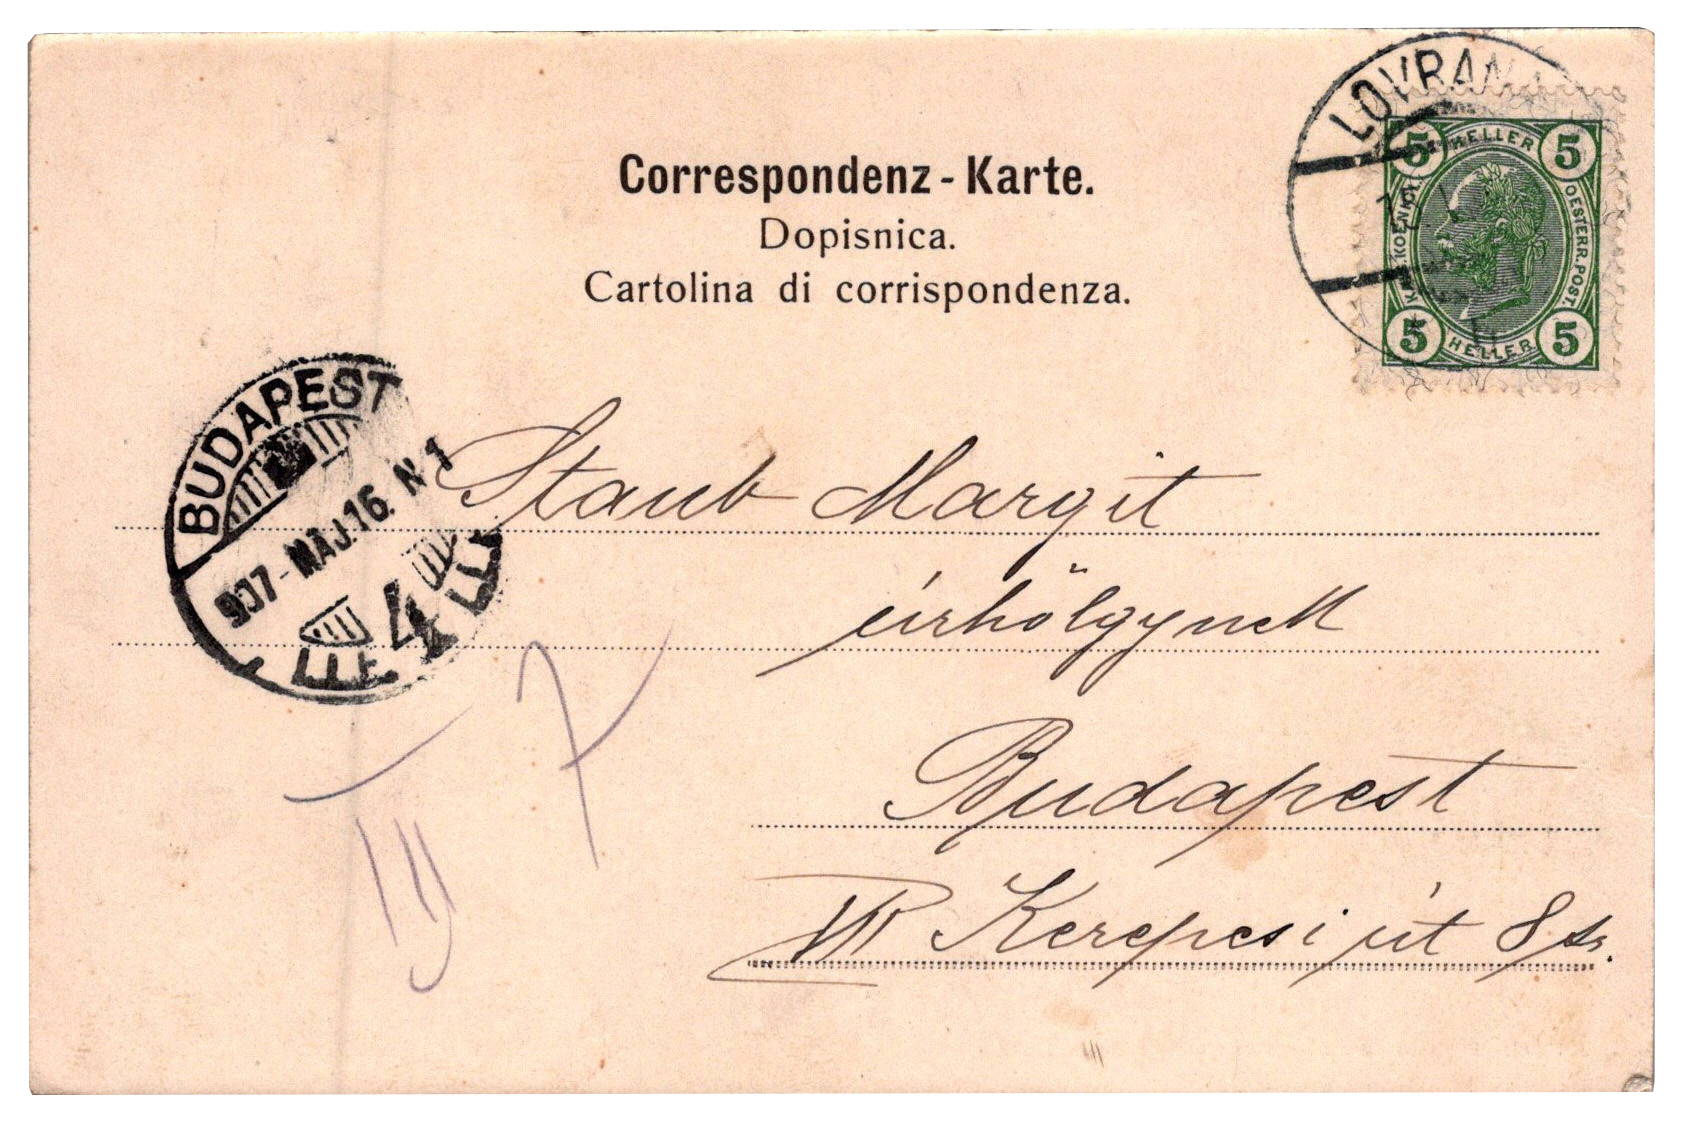 LOVRANA
5 HELLER 5
KAIS. KOENIGL. OESTERR. POST.
5 HELLER 5
Correspondenz - Karte.
Dopisnica.
Cartolina di corrispondenza.
BUDAPEST
907 - MAJ. 16. N 1
Staub Margit
úrhölgynek
Budapest
VII Kerepesi út 8 sz.
7